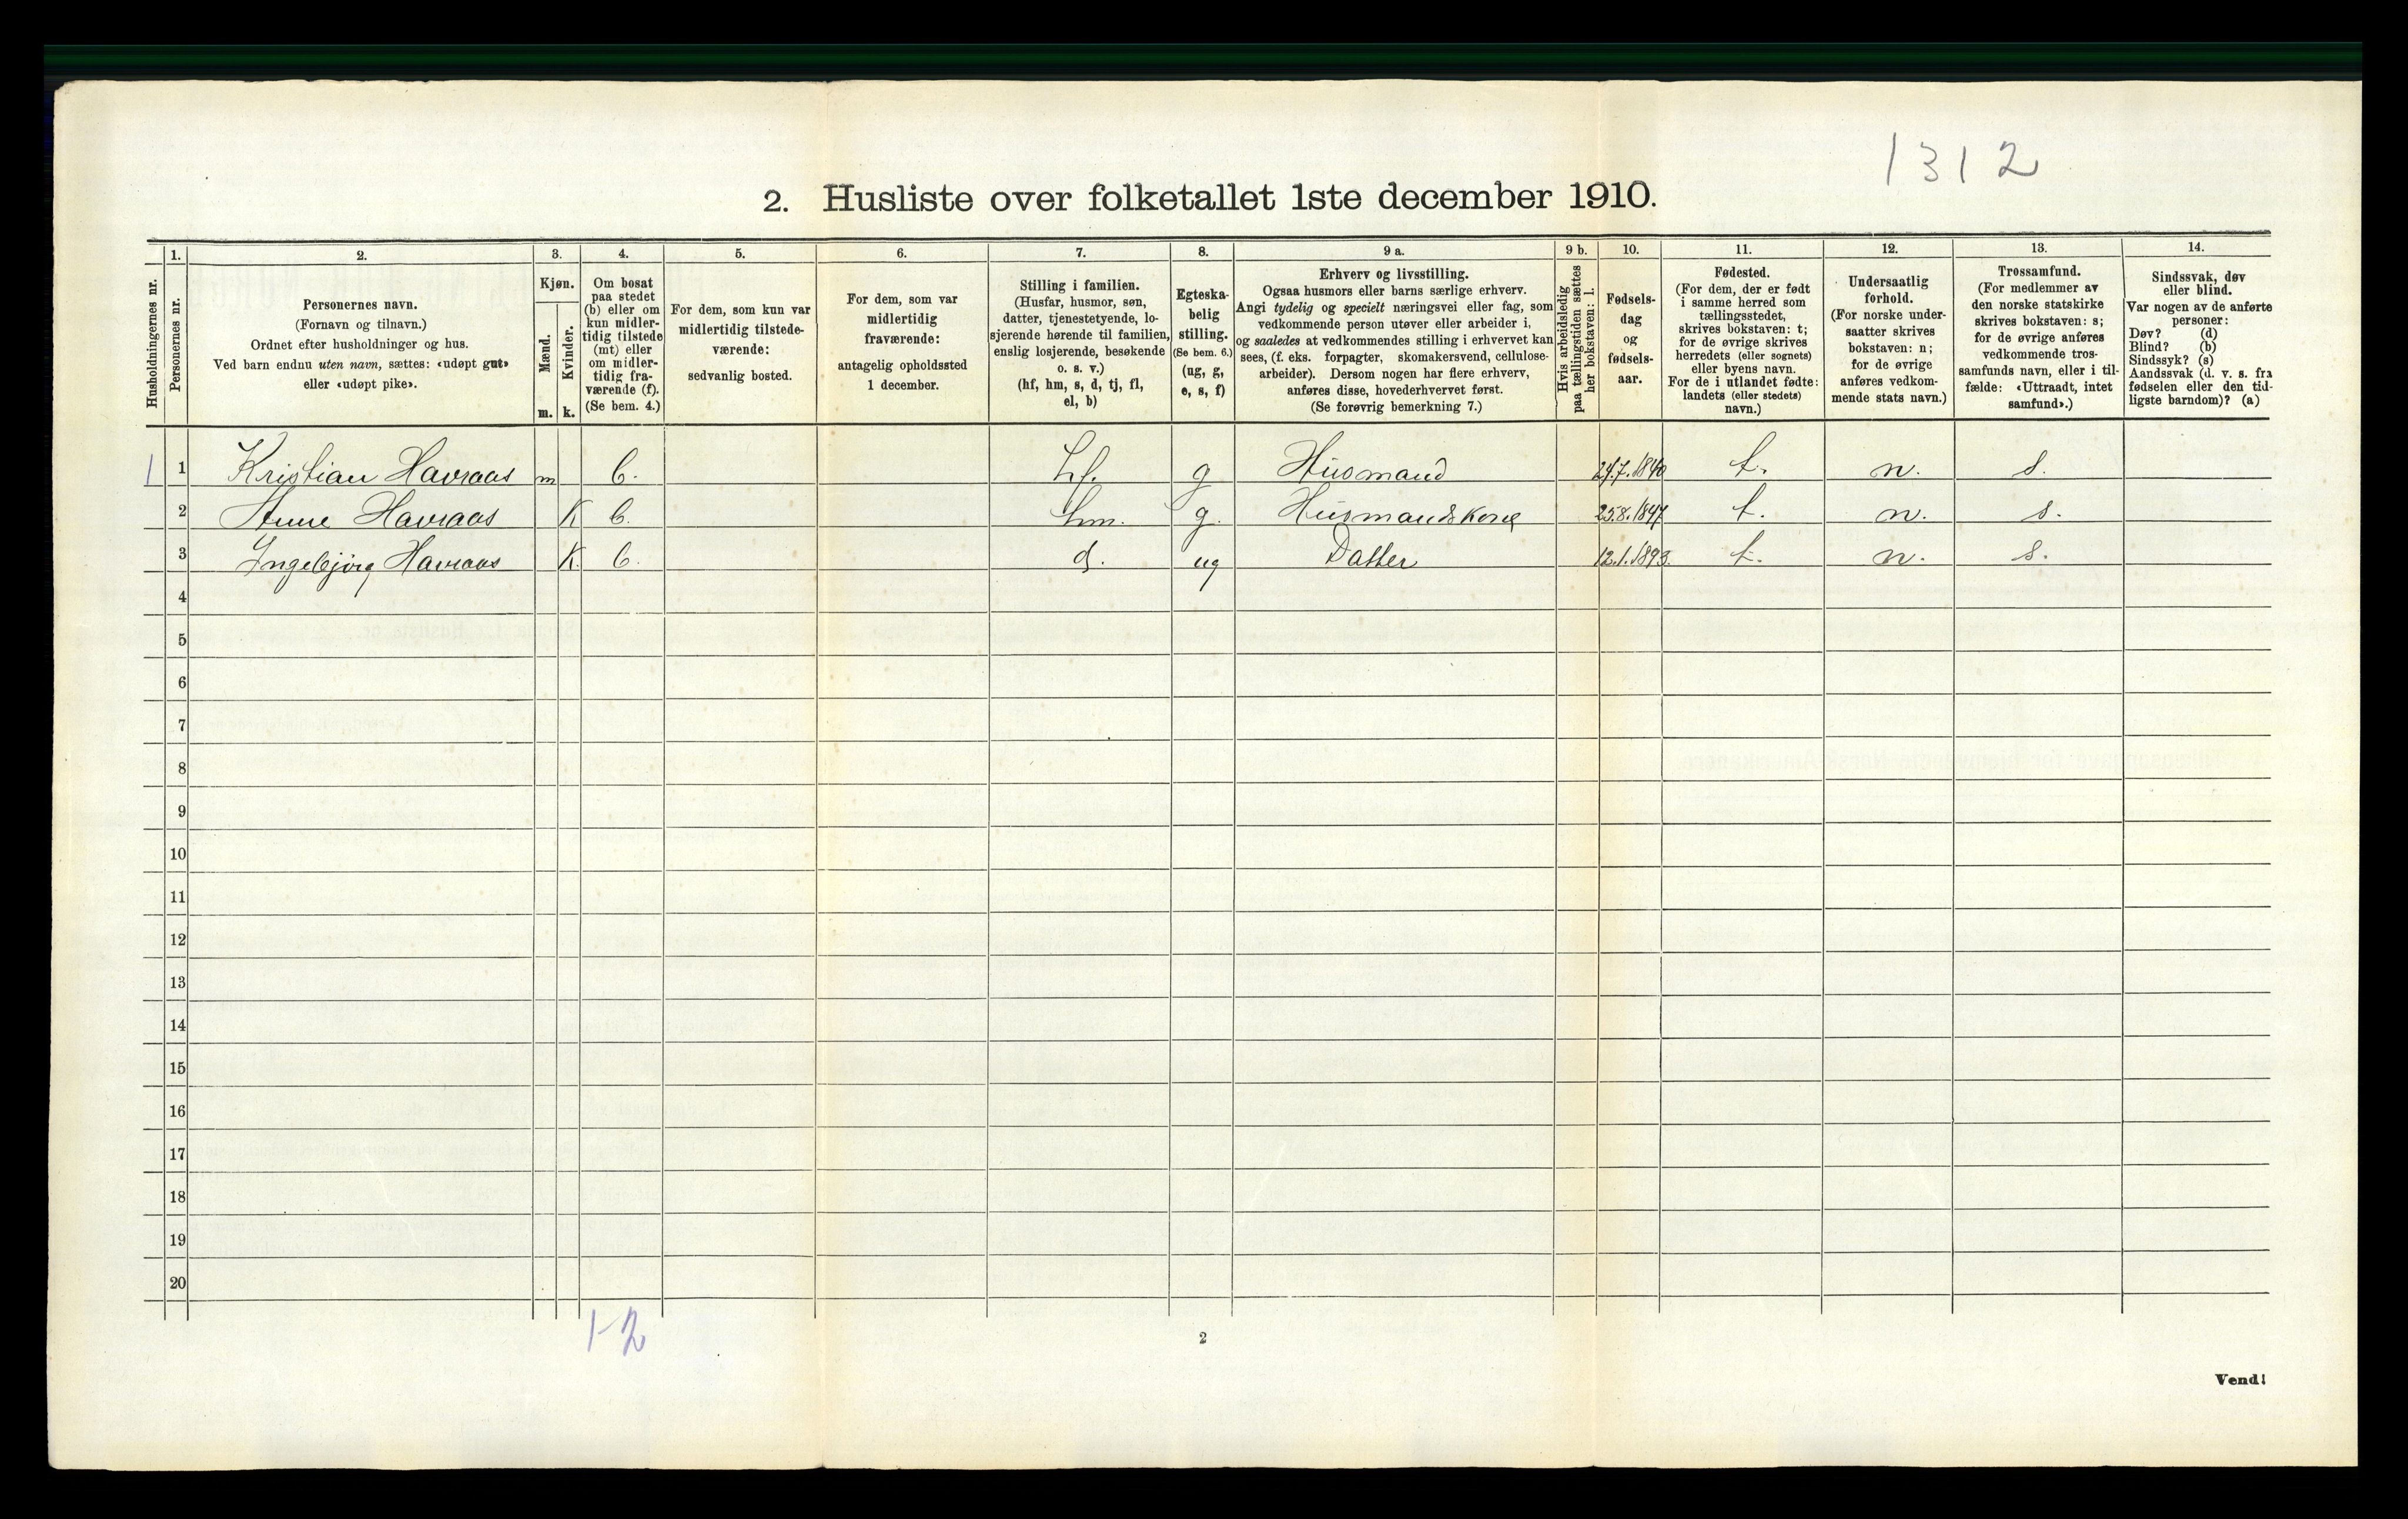 1312
2. Husliste over folketallet 1ste december 1910.
Husholdningernes nr.
1.
Personernes nr.
2.
Personernes navn.
(Fornavn og tilnavn.)
Ordnet efter husholdninger og hus.
Ved barn endnu uten navn, sættes: «udøpt gut»
eller «udøpt pike».
3.
Kjøn.
Mænd.
m.
Kvinder.
k.
4.
Om bosat
paa stedet
(b) eller om
kun midler-
tidig tilstede
(mt) eller
om midler-
tidig fra-
værende (f).
(Se bem. 4.)
5.
For dem, som kun var
midlertidig tilstede-
værende:
sedvanlig bosted.
6.
For dem, som var
midlertidig
fraværende:
antagelig opholdssted
1 december.
7.
Stilling i familien.
(Husfar, husmor, søn,
datter, tjenestetyende, lo-
sjerende hørende til familien,
enslig losjerende, besøkende
o. s. v.)
(hf, hm, s, d, tj, fl,
el, b)
8.
Egteska-
belig
stilling.
(Se bem. 6.)
(ug, g,
e, s, f)
9 a.
Erhverv og livsstilling.
Ogsaa husmors eller barns særlige erhverv.
Angi tydelig og specielt næringsvei eller fag, som
vedkommende person utøver eller arbeider i,
og saaledes at vedkommendes stilling i erhvervet kan
sees, (f. eks. forpagter, skomakersvend, cellulose-
arbeider). Dersom nogen har flere erhverv,
anføres disse, hovederhvervet først.
(Se forøvrig bemerkning 7.)
9 b.
Hvis arbeidsledig
paa tællingstiden sættes
her bokstaven: l.
10.
Fødsels-
dag
og
fødsels-
aar.
11.
Fødested.
(For dem, der er født
i samme herred som
tællingsstedet,
skrives bokstaven: t;
for de øvrige skrives
herredets (eller sognets)
eller byens navn.
For de i utlandet fødte:
landets (eller stedets)
navn.)
12.
Undersaatlig
forhold.
(For norske under-
saatter skrives
bokstaven: n;
for de øvrige
anføres vedkom-
mende stats navn.)
13.
Trossamfund.
(For medlemmer av
den norske statskirke
skrives bokstaven: s;
for de øvrige anføres
vedkommende tros-
samfunds navn, eller i til-
fælde: «Uttraadt, intet
samfund».)
14.
Sindssvak, døv
eller blind.
Var nogen av de anførte
personer:
Døv? (d)
Blind? (b)
Sindssyk? (s)
Aandssvak (d. v. s. fra
fødselen eller den tid-
ligste barndom)? (a)
1 1 Kristian Havraas m b. hf. g Husmand 24.7.1840 t. n. s.
2 Anne Havraas K b. hm. g. Husmandskone 25.8.1847 t. n. s.
3 Ingebjörg Havraas K. b. d. ug Datter 12.1.1893. t. n. s.
4
5
6
7
8
9
10
11
12
13
14
15
16
17
18
19
20
1-2
2
Vend!